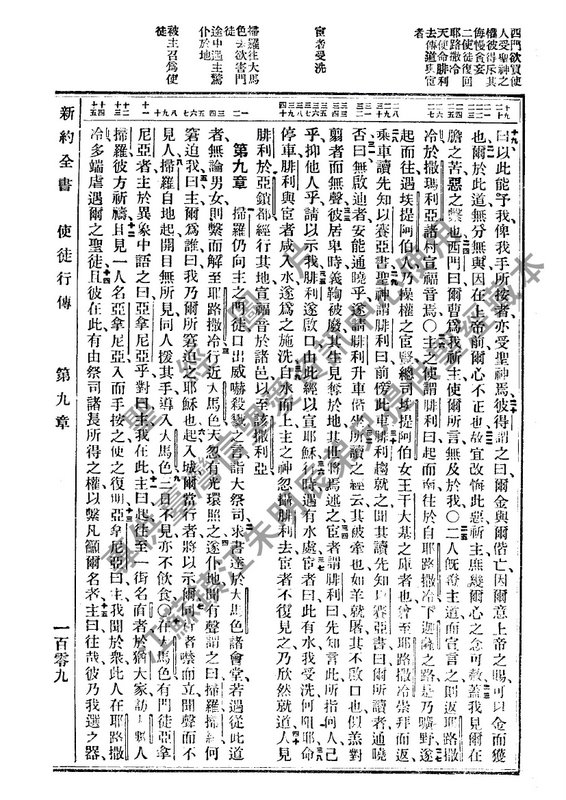 西門欲買使
人受聖神之
權彼得斥其
侮慢貪妄
二使徒復回
耶路撒冷
天使命腓利
去傳道與宦
者
宦者受洗
掃羅往大馬
色去欲害門
徒
途中遇主驚
仆於地
被主召爲使
徒
曰以此能予我俾我手所按者亦受聖神焉彼得謂之曰爾金與爾偕亡因爾意上帝之賜可以金而獲
也爾於此道無分無與因在上帝前爾心不正也故宜改悔此惡祈主庶幾爾心之念可赦蓋我見爾在
膽之苦惡之繫也西門曰爾曹爲我祈主使爾所言無及於我〇二人旣證主道而宣言之則返耶路撒
冷於撒瑪利亞諸村宣福音焉〇主之使謂腓利曰起而南往於自耶路撒冷下迦薩之路是乃曠野遂
起而往遇埃提阿伯人乃操權之宦豎總司埃提阿伯女王干大基之庫者也曾至耶路撒冷崇拜而返
乘車讀先知以賽亞書聖神謂腓利曰前傍此車腓利趨就之聞其讀先知以賽亞書曰爾所讀者通曉
否曰無啟迪者安能通曉乎遂請腓利升車偕坐所讀之經云其被牽也如羊就屠其不啟口也似羔對
翦者而無聲彼居卑時義鞫被廢其生見奪於地其世將焉述之宦者謂腓利曰先知言此所指何人己
乎抑他人乎請以示我腓利遂啟口由此經以宣耶穌行路遇有水處宦者曰此有水我受洗何阻耶命
停車腓利與宦者咸入水遂爲之施洗自水而上主之神忽攝腓利去宦者不復見之乃欣然就道人見
腓利於亞鎖都經行其地宣福音於諸邑以至該撒利亞
第九章　掃羅仍向主之徒口出威嚇殺戮之言詣大祭司求書達於大馬色諸會堂若遇從此道
者無論男女則繫而解至耶路撒冷行近大馬色天忽有光環照之遂仆地聞有聲謂之曰掃羅掃羅何
窘迫我曰主爾爲誰曰我乃爾所窘迫之耶穌也起入城爾當行者將以示爾同行者噤而立聞聲而不
見人掃羅自地起開目無所見同人援其手導入大馬色三日不見亦不飲食〇在大馬色有門徒亞拿
尼亞者主於異象中語之曰亞拿尼亞乎對曰主我在此主曰起往至一街名直者於猶大家訪大數人
掃羅彼方祈禱且見一人名亞拿尼亞入而手按之使之復明亞拿尼亞曰主我聞於衆此人在耶路撒
冷多端虐遇爾之聖徒且彼在此有由祭司諸長所得之權以繫凡籲爾名者主曰往哉彼乃我選之器
新約全書　使徒行傳　第九章　一百零九